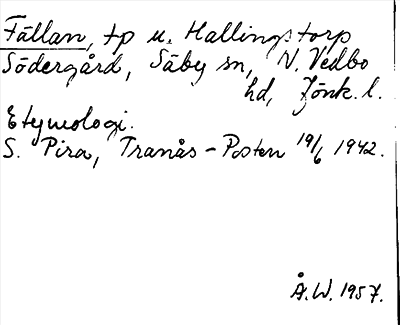 Fällan, tp u. Hallingstorp
Södergård, Säby sn, N. Vedbo
hd, Jönk. l.
Etymologi.
S. Pira, Tranås-Posten 19/6 1942.
Å.W. 1957.